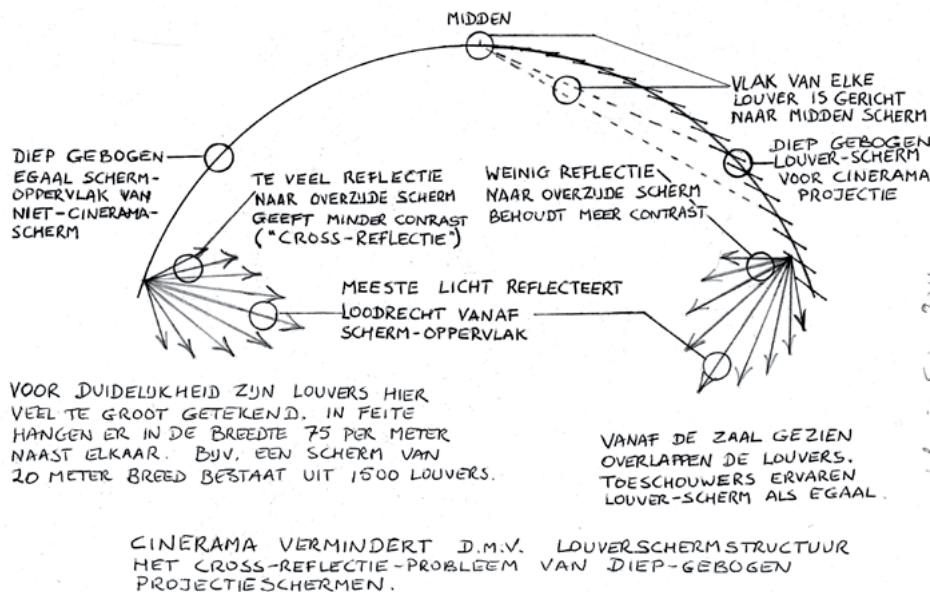 MIDDEN
VLAK VAN ELKE
LOUVER IS GERICHT
NAAR MIDDEN SCHERM
DIEP GEBOGEN
EGAAL SCHERM-
OPPERVLAK VAN
NIET-CINERAMA-
SCHERM
TE VEEL REFLECTIE
NAAR OVERZIJDE SCHERM
GEEFT MINDER CONTRAST
("CROSS-REFLECTIE")
WEINIG REFLECTIE
NAAR OVERZIJDE SCHERM
BEHOUDT MEER CONTRAST
DIEP GEBOGEN
LOUVER-SCHERM
VOOR CINERAMA
PROJECTIE
MEESTE LICHT REFLECTEERT
LOODRECHT VANAF
SCHERM-OPPERVLAK
VOOR DUIDELIJKHEID ZIJN LOUVERS HIER
VEEL TE GROOT GETEKEND. IN FEITE
HANGEN ER IN DE BREEDTE 75 PER METER
NAAST ELKAAR. BIJV. EEN SCHERM VAN
20 METER BREED BESTAAT UIT 1500 LOUVERS.
VANAF DE ZAAL GEZIEN
OVERLAPPEN DE LOUVERS.
TOESCHOUWERS ERVAREN
LOUVER-SCHERM ALS EGAAL.
CINERAMA VERMINDERT D.M.V. LOUVERSCHERMSTRUCTUUR
HET CROSS-REFLECTIE-PROBLEEM VAN DIEP-GEBOGEN
PROJECTIESCHERMEN.